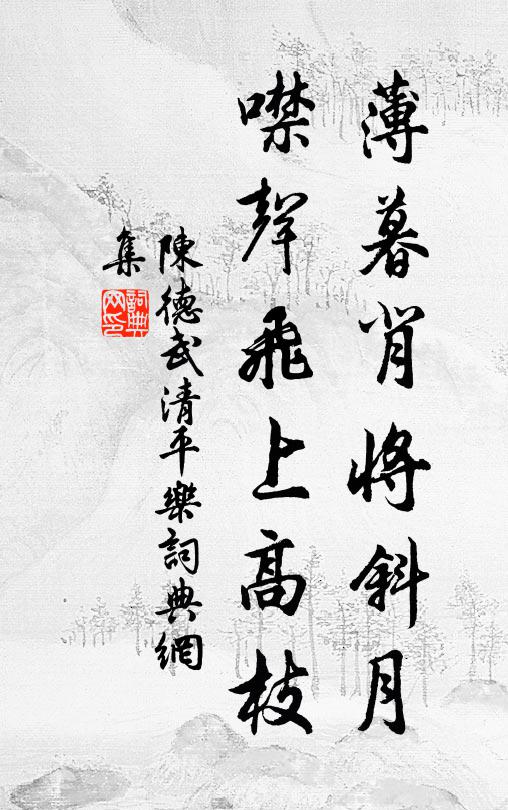 薄暮背將斜月
噤聲飛上高枝
陳德武清平樂詞典網
集
詞典网印